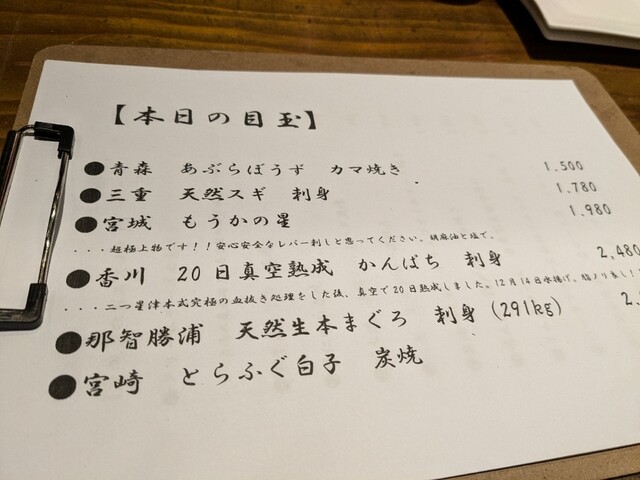 【本日の目玉】
●青森 あぶらぼうず カマ焼き 1.500
●三重 天然スギ 刺身 1.780
●宮城 もうかの星 1.980
...超極上物です!!安心安全なレバー刺しと思ってください。胡麻油と塩で。
●香川 20日真空熟成 かんぱち 刺身 2,480
...二つ星津本式究極の血抜き処理をした後、真空で20日熟成しました。12月14日水揚げ。脂ノリ
●那智勝浦 天然生本まぐろ 刺身(291kg) 2.
●宮崎 とらふぐ白子 炭焼